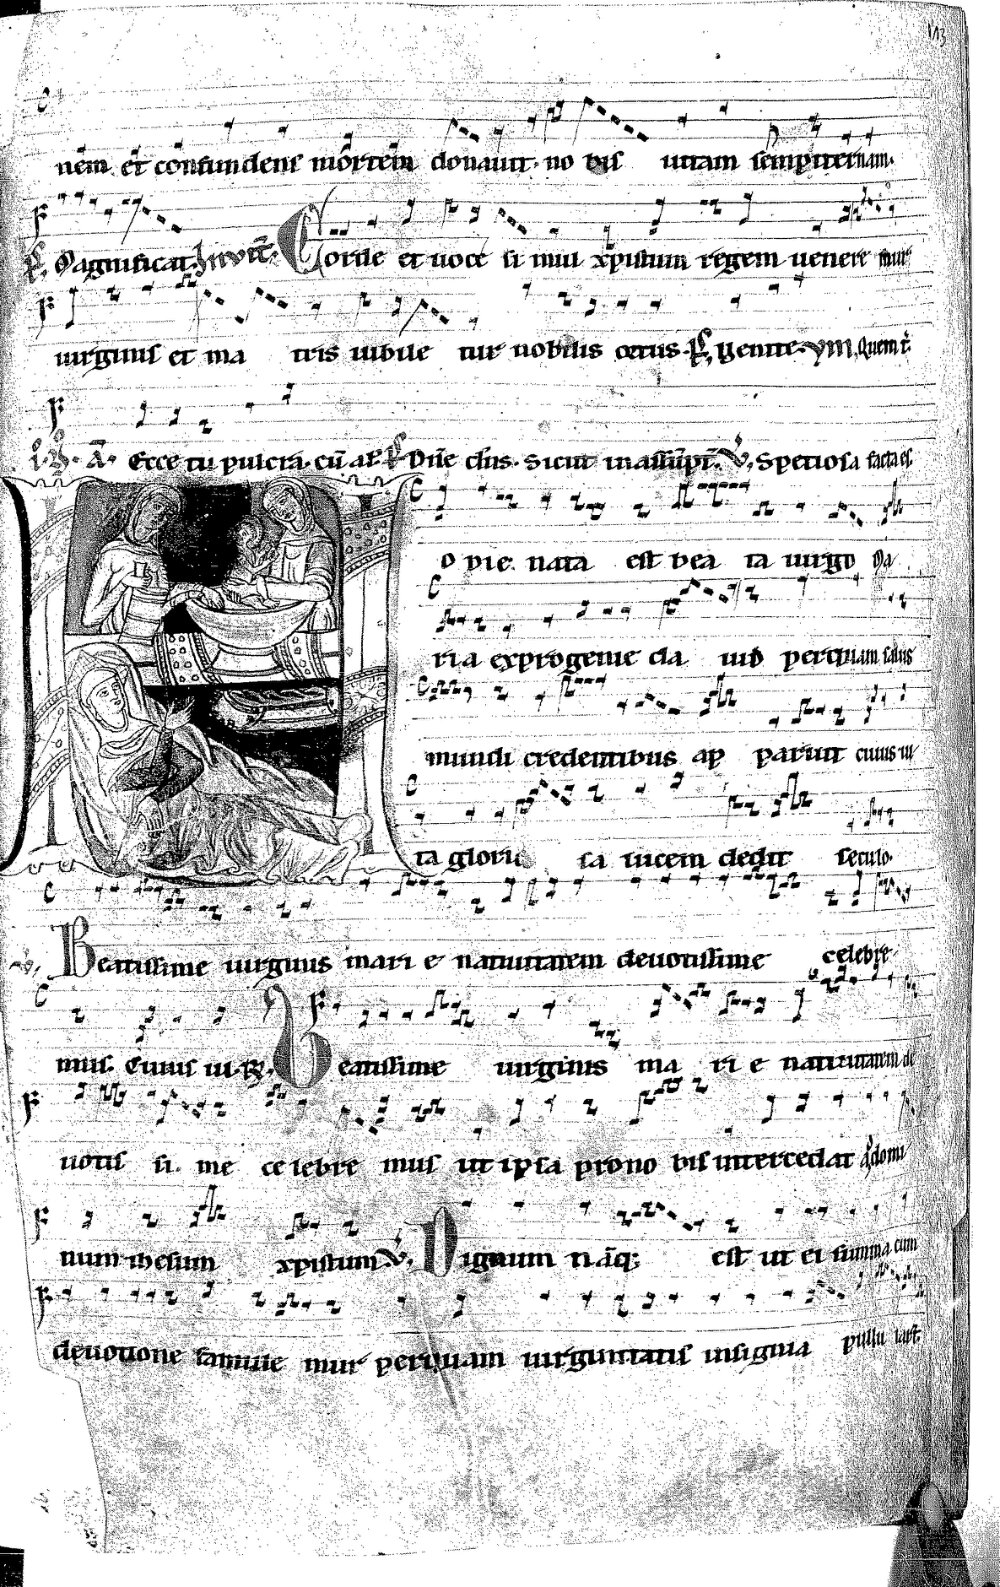 113
nem et confundens mortem donauit no bis uitam sempiternam.
Magnificat. Inuit. Corde et uoce si mul xpistum regem uenere mur
uirginis et ma tris iubile tur nobilis cetus. Ps. venite. ym. Quem t.
A. Ecce tu pulcra. cu al. Ps Dne dns. Sicut in assumpt. V. Spetiosa facta es.
o die nata est bea ta uirgo Ma
ri a ex progenie da uid per quam salus
mundi credentibus ap paruit cuius ui
ta glorio sa lucem dedit seculo.
V. Beatissime uirginis mari e natiuitatem deuotissime celebre
mus. Cuius ui. R. Beatissime uirginis ma ri e natiuitatem de
uotis si me ce lebre mus ut ipsa pro no bis intercedat ad domi
num ihesum xpistum V. Dignum naq; est ut ei summa cum
deuotione famule mur per quam uirginitatis insignia pullu